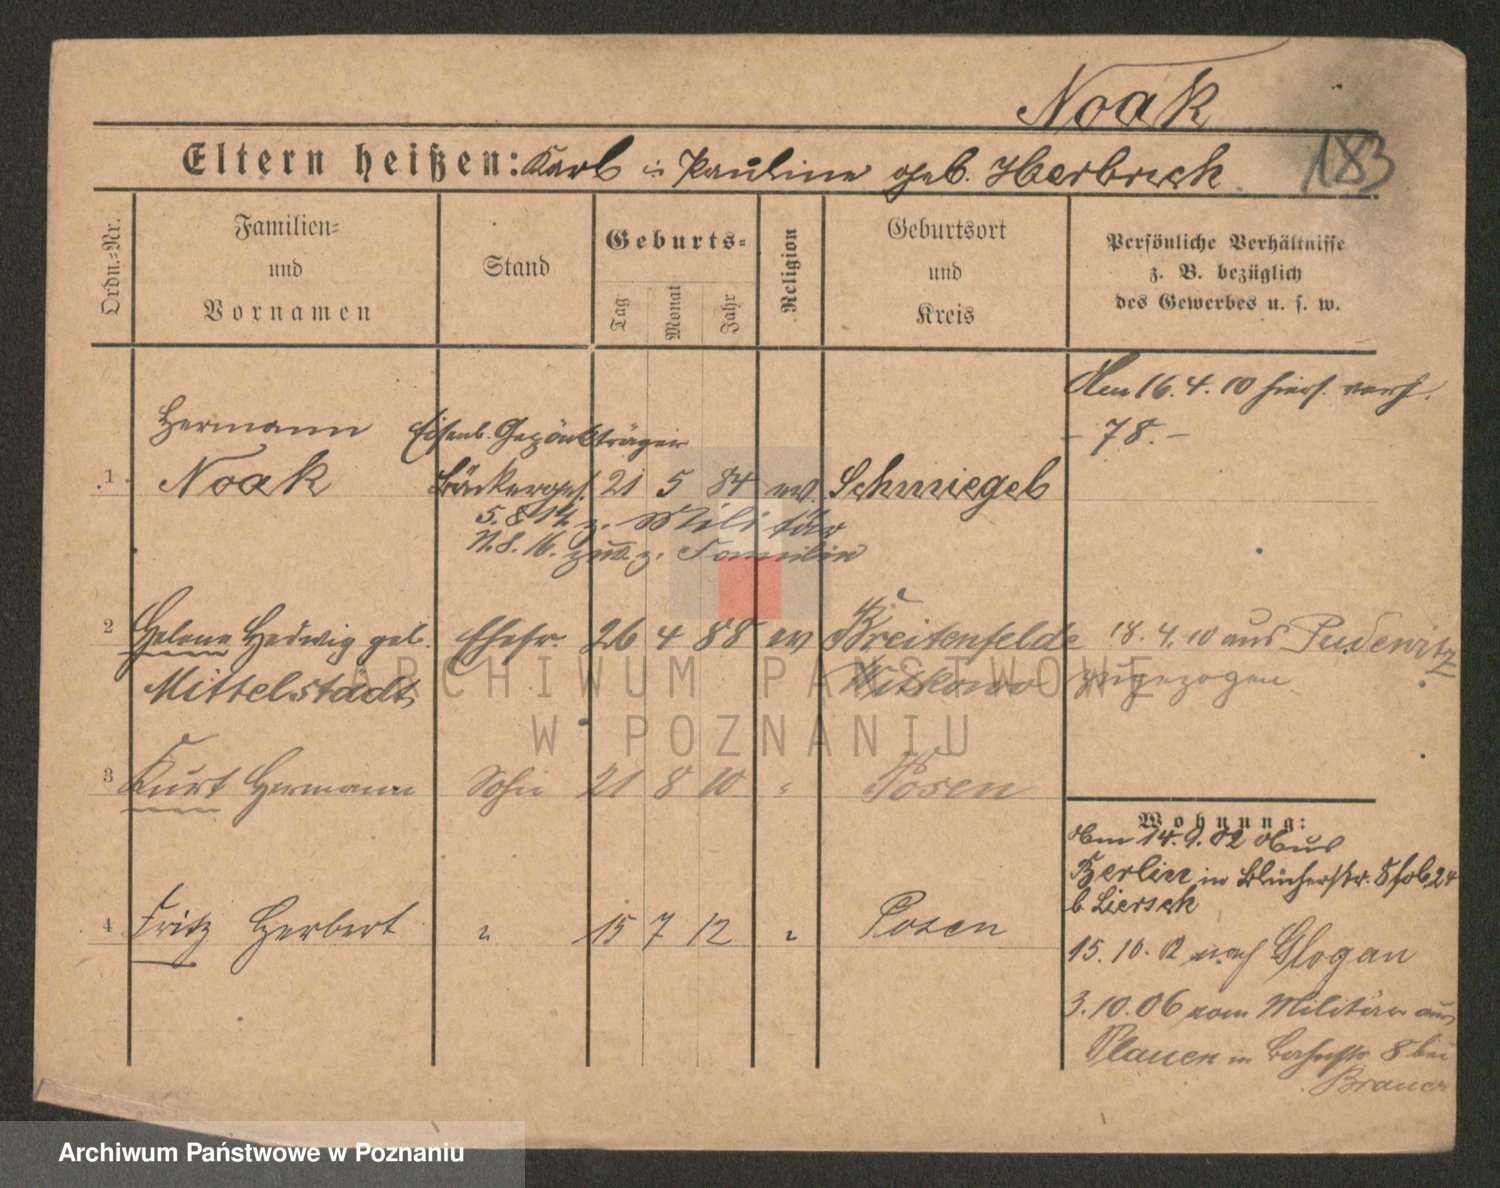 Noak
Eltern heißen: Karl u Pauline geb. Herbrich
183
Ordn.-Nr.
Familien-
und
Vornamen
Stand
Geburts-
Tag
Monat
Jahr
Religion
Geburtsort
und
Kreis
Persönliche Verhältnisse
z. B. bezüglich
des Gewerbes u. s. w.
Am 16.4.10 hiers. verh.
- 78. -
Hermann Eisenb. Gepäckträger
1 Noak Bäckerges. 21 5 84 ev. Schmiegel
5.8.14. z. Militär
z. Familie
2 Helene Hedwig geb. Ehefr. 26 4 88 ev Breitenfelde 18.4.10 aus Pudewitz
Mittelstädt Kr. Witkowo zugezogen
3 Kurt Hermann Sohn 21 8 10 " Posen
Wohnung:
Am 14.9.02 Aus
Berlin in Blücherstr. 8
b Liersch
4 Fritz Herbert " 15 7 12 " Posen
15.10.02 nach Glogau
3.10.06 vom Militär aus
Plauen in Bachstr 8 bei
Brauer
ARCHIWUM PAŃSTWOWE
W POZNANIU
Archiwum Państwowe w Poznaniu